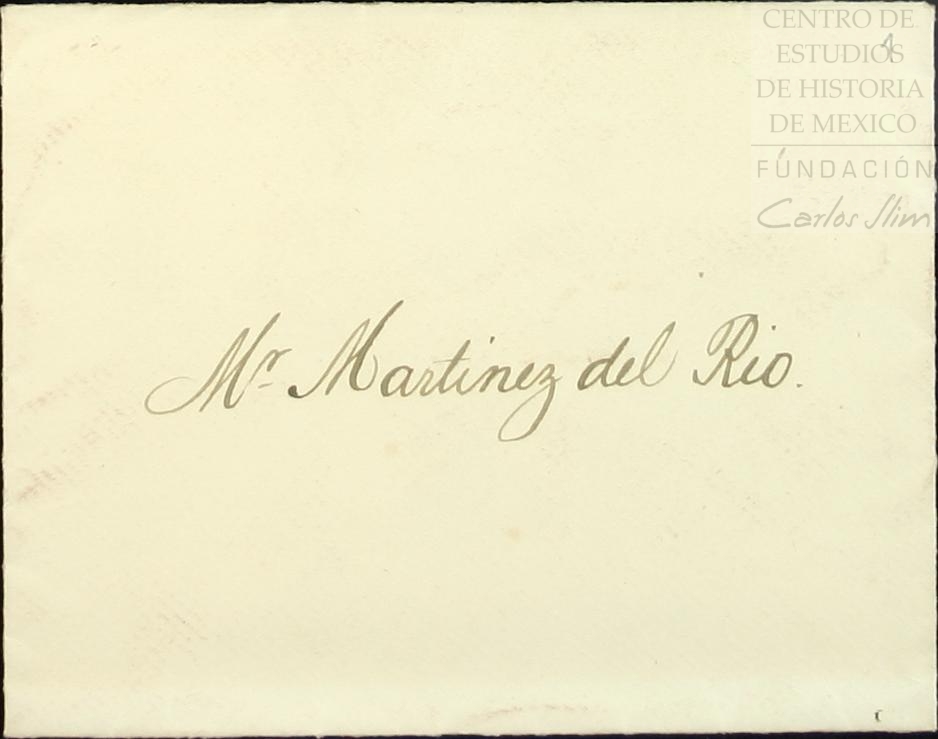 CENTRO DE
ESTUDIOS
DE HISTORIA
DE MEXICO
FUNDACIÓN
Carlos Slim
Mr. Martinez del Rio.